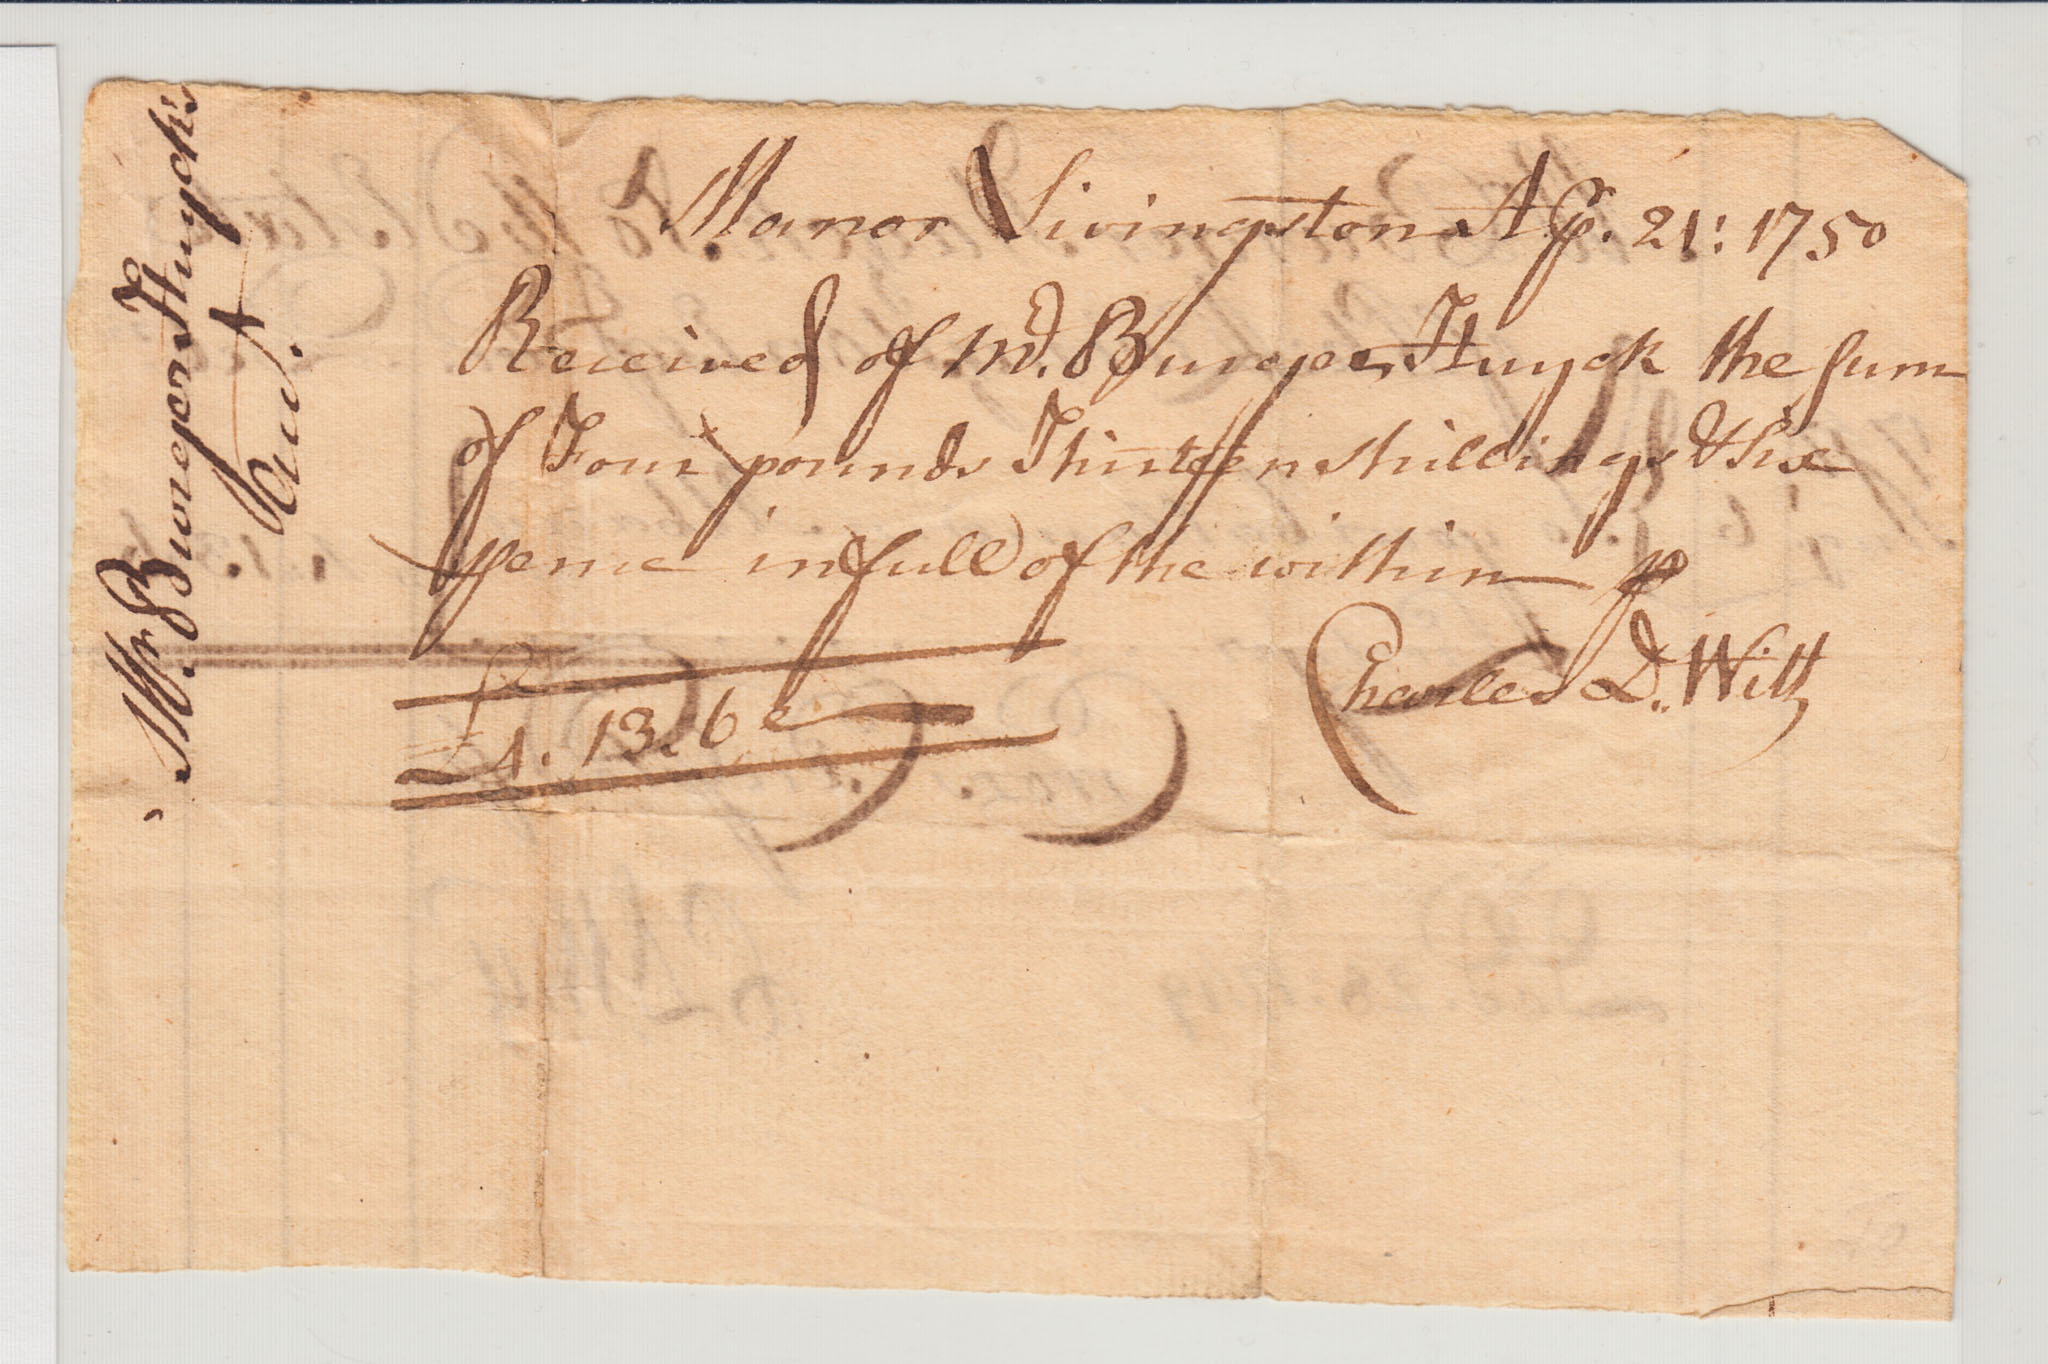 Manor Livingston Ap. 21: 1750
Received of Mr. Burger Huyck the sum
of Four pounds Thirteen shillings & six
pence in full of the within p
Charles D. Witt
£4. 13. 6
Mr. Burger Huycks
Acct.